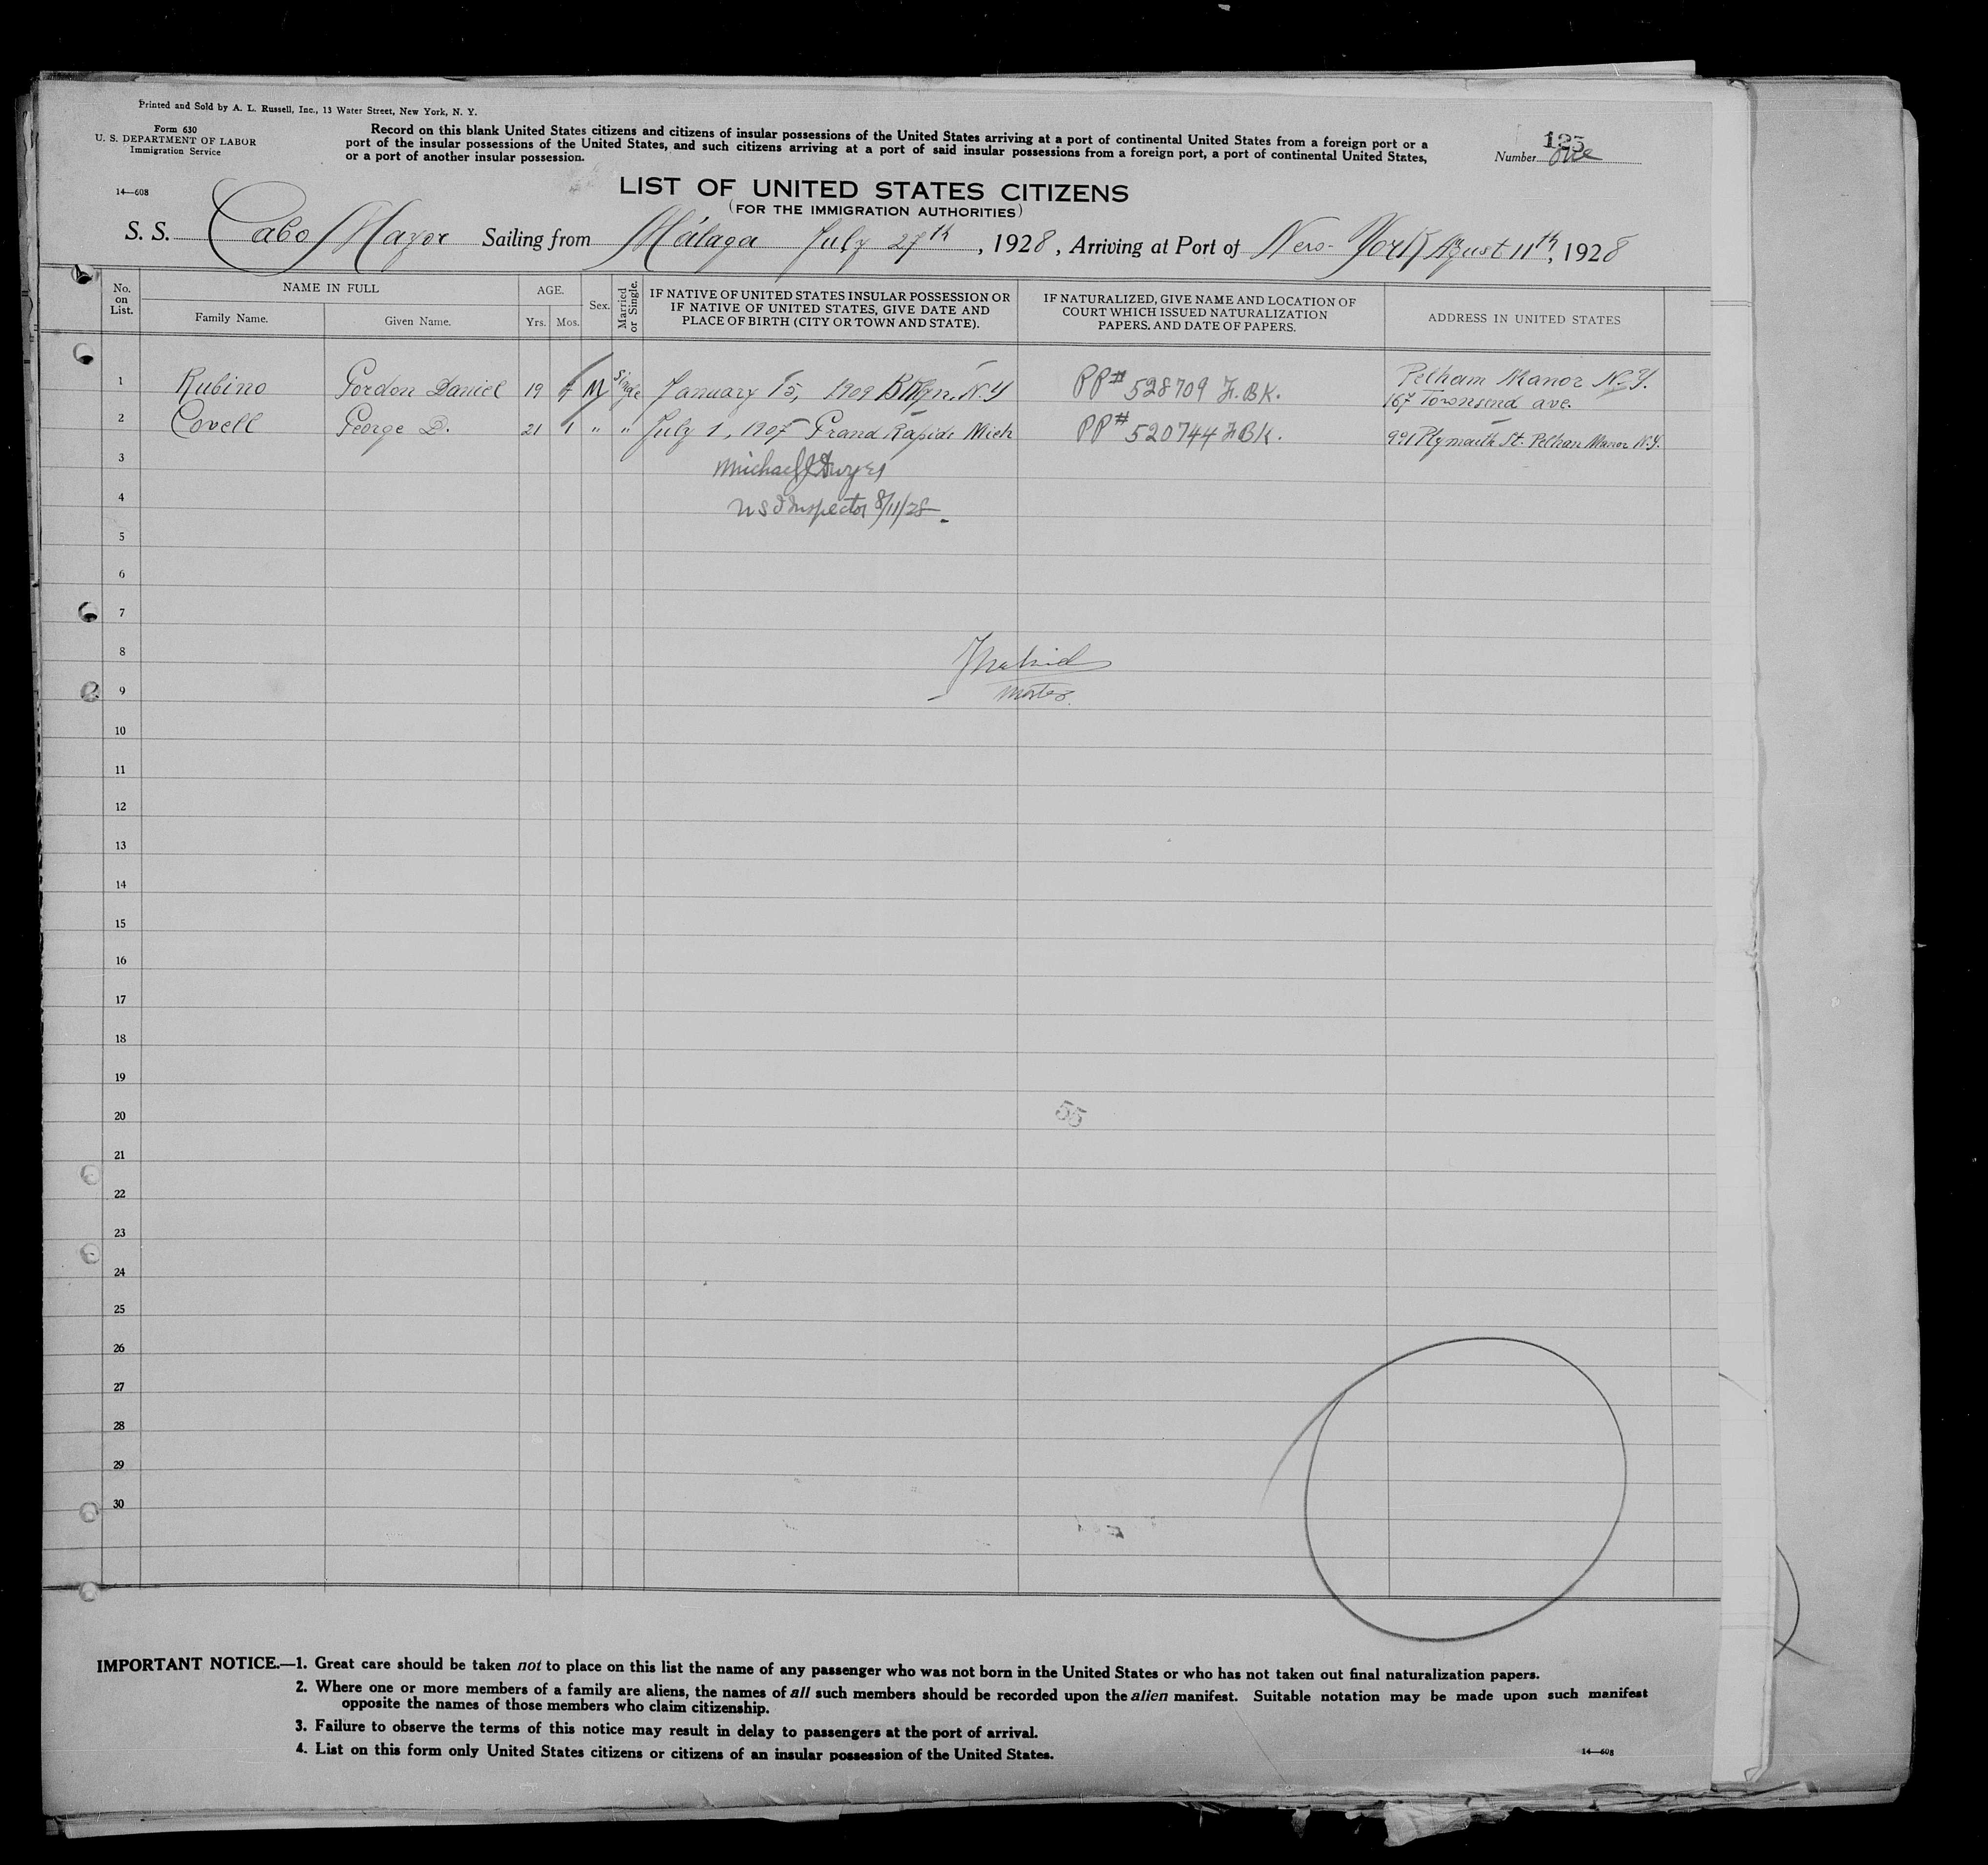 Printed and Sold by A. L. Russell, Inc., 13 Water Street, New York, N. Y.
Form 630
U. S. DEPARTMENT OF LABOR
Immigration Service
14—608
Record on this blank United States citizens and citizens of insular possessions of the United States arriving at a port of continental United States from a foreign port or a
port of the insular possessions of the United States, and such citizens arriving at a port of said insular possessions from a foreign port, a port of continental United States,
or a port of another insular possession.
125
Number One
LIST OF UNITED STATES CITIZENS
(FOR THE IMMIGRATION AUTHORITIES)
S. S. Cabo Mayor Sailing from Málaga July 27th, 1928, Arriving at Port of New-York August 11th, 1928
No. on List. NAME IN FULL AGE. Sex. Married or Single. IF NATIVE OF UNITED STATES INSULAR POSSESSION OR IF NATIVE OF UNITED STATES, GIVE DATE AND PLACE OF BIRTH (CITY OR TOWN AND STATE). IF NATURALIZED, GIVE NAME AND LOCATION OF COURT WHICH ISSUED NATURALIZATION PAPERS, AND DATE OF PAPERS. ADDRESS IN UNITED STATES
Family Name. Given Name. Yrs. Mos.
1 Rubino Gordon Daniel 19 7 M Single January 15, 1909 BKlyn. N.Y PP# 528709 Z.BK. Pelham Manor N.Y.
167 Townsend ave.
2 Covell George D. 21 1 " " July 1, 1907 Grand Rapids Mich PP# 520744 Z.BK. 991 Plymouth St. Pelham Manor N.Y.
3 Michael J
4 U S I Inspector 8/11/28
5
6
7
8
9 Master
10
11
12
13
14
15
16
17
18
19
20 55
21
22
23
24
25
26
27
28
29
30
IMPORTANT NOTICE.—1. Great care should be taken not to place on this list the name of any passenger who was not born in the United States or who has not taken out final naturalization papers.
2. Where one or more members of a family are aliens, the names of all such members should be recorded upon the alien manifest. Suitable notation may be made upon such manifest
opposite the names of those members who claim citizenship.
3. Failure to observe the terms of this notice may result in delay to passengers at the port of arrival.
4. List on this form only United States citizens or citizens of an insular possession of the United States.
14—608